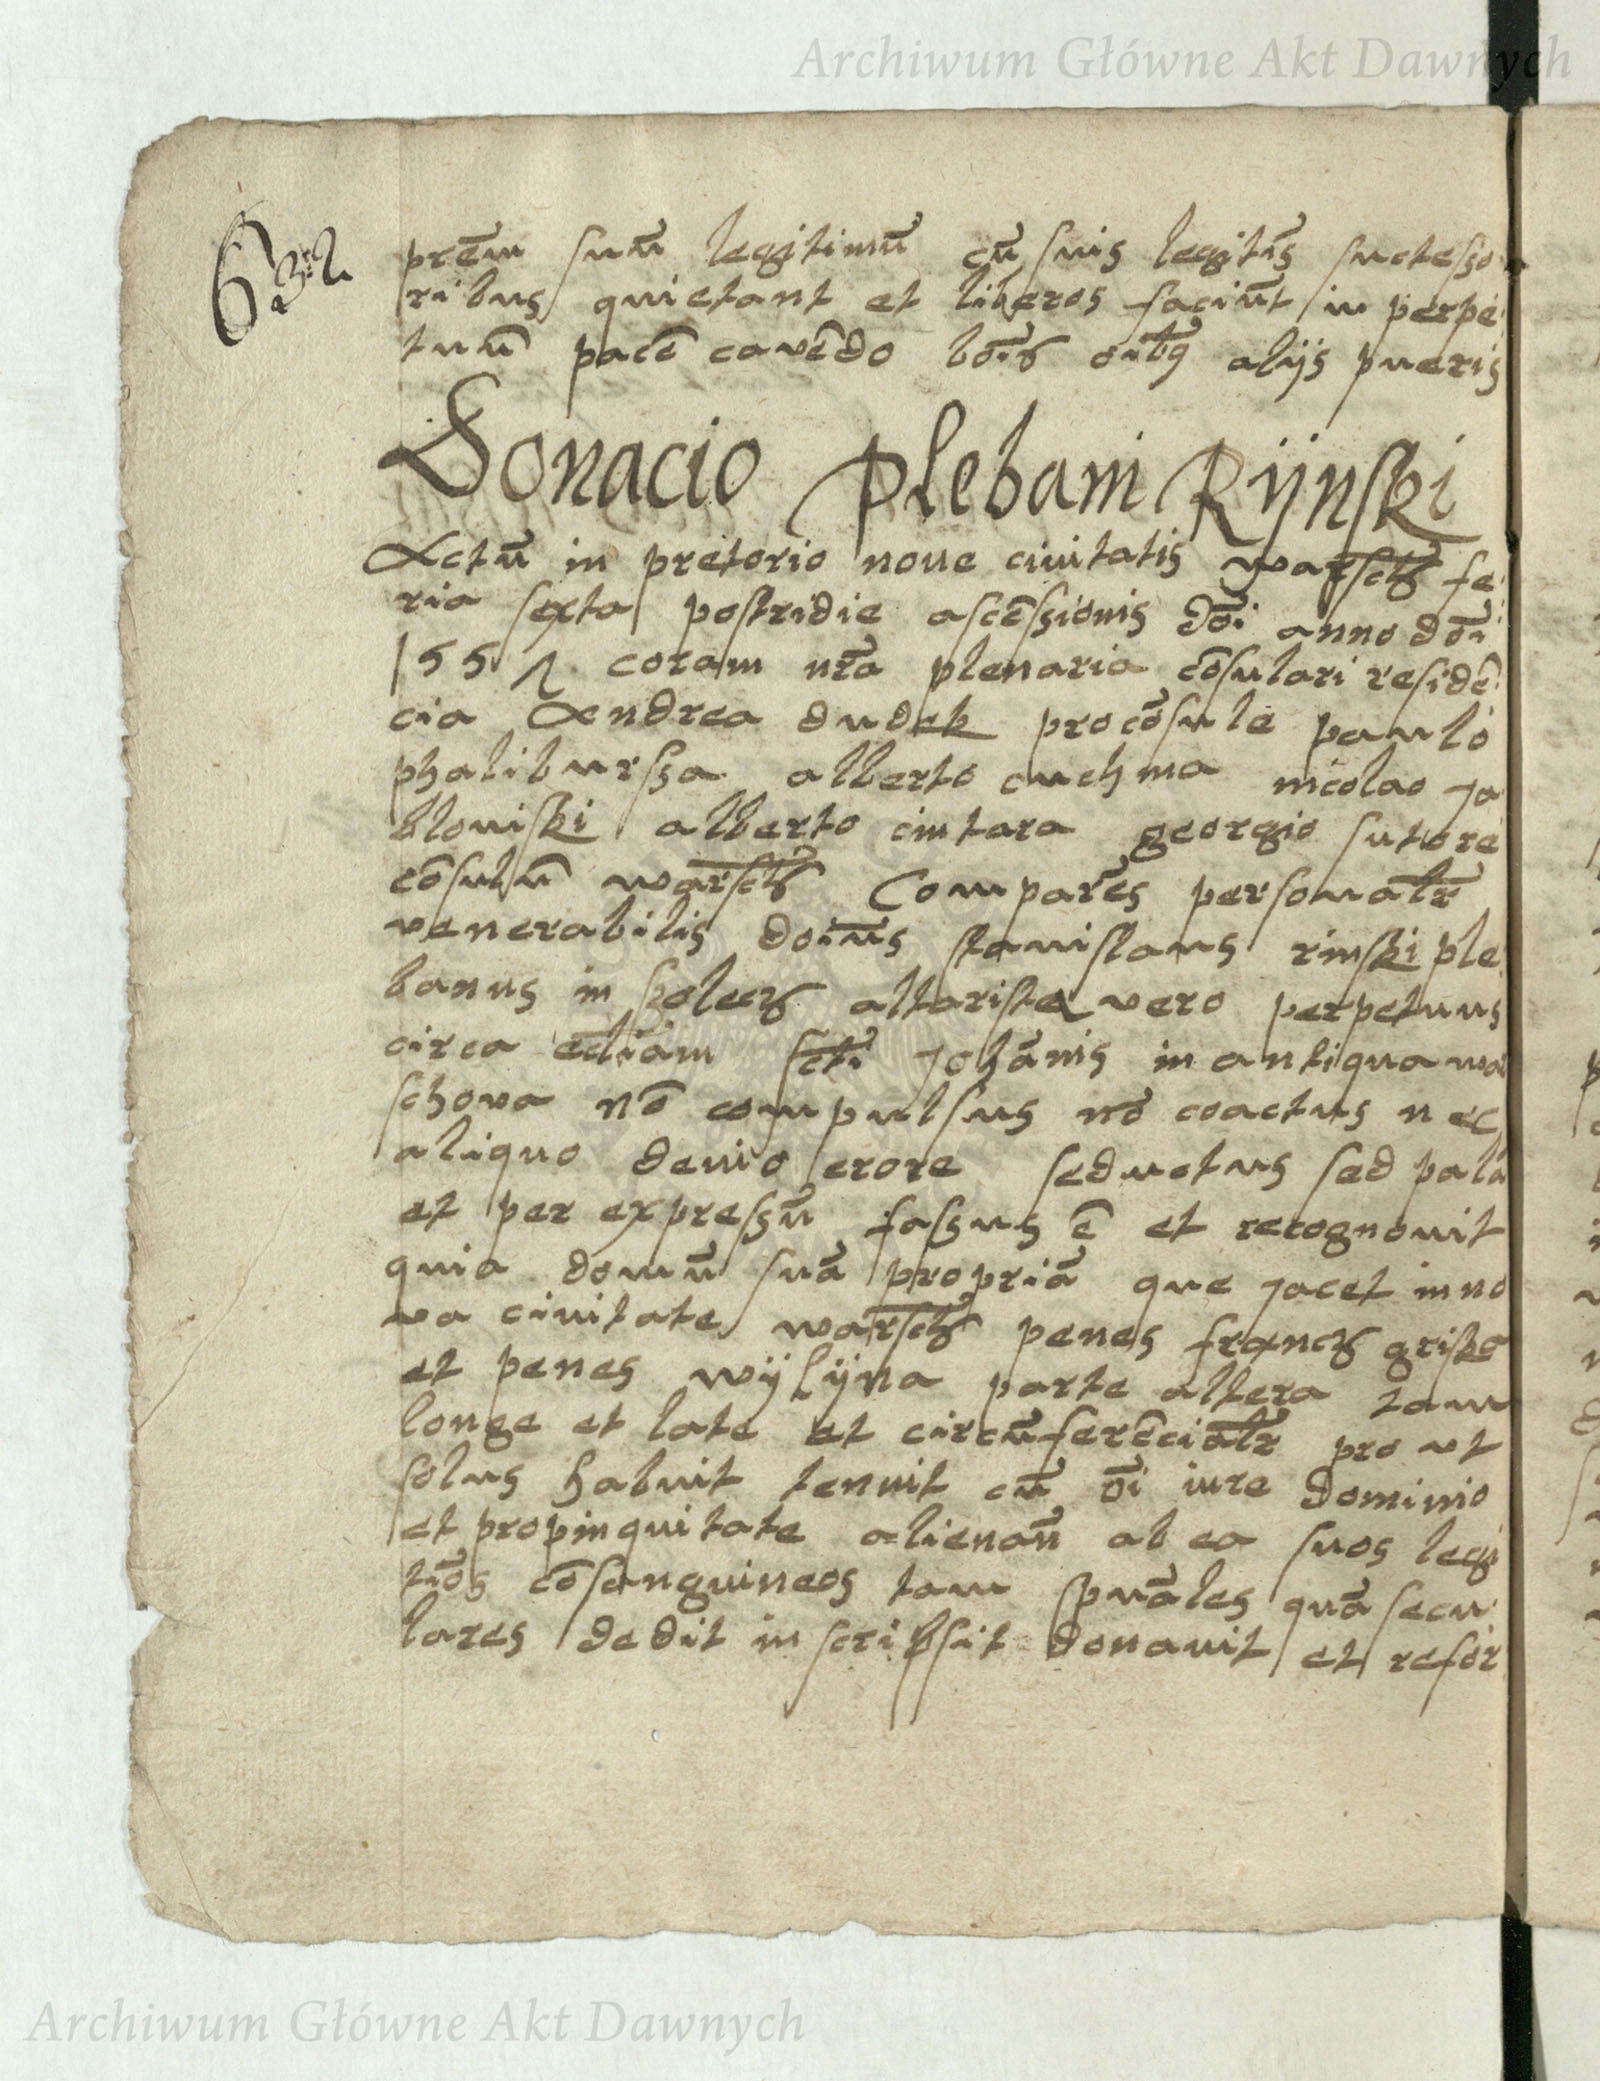 Archiwum Główne Akt Dawnych
632
prēm suū legitimū cū suis legitīs suctesso
ribus quietant et liberos faciūt in perpe
tuū pacē cavēdo boīs oībꝫ alijs pueris
Donacio plebani Rijnski
Actū in pretorio noue ciuitatis warsch fe
ria sexta postridie ascēssionis dōi anno dōi
155 coram nrā plenaria cōsulari residē
cia Andrea dudek procōsule paulo
phaliburssa alberto cuchma nicolao ja
blouiski alberto georgio sutore
cōsulū warsch Compares personalr
venerabilis doīnus stanislaus rinski ple
banus in altarista vero perpetuus
circa eclīam scti johānis in antiqua wa
schova nō compulsus nō coactus nec
aliquo devio erore seductus sed palā
et per expressū fassus ē et recognouit
quia domū suā propriā que jacet in no
va ciuitate warsch penes francz grisko
et penes wÿlÿna parte altera tam
longe et late et circūferēcialr pro vt
solus habuit tenuit cū oī iure dominio
et propinquitate alienaū ab ea suos legi
tīos cōsanguineos tam spuāles quā secu
lares dedit inscribsit donauit et refor
Archiwum Główne Akt Dawnych